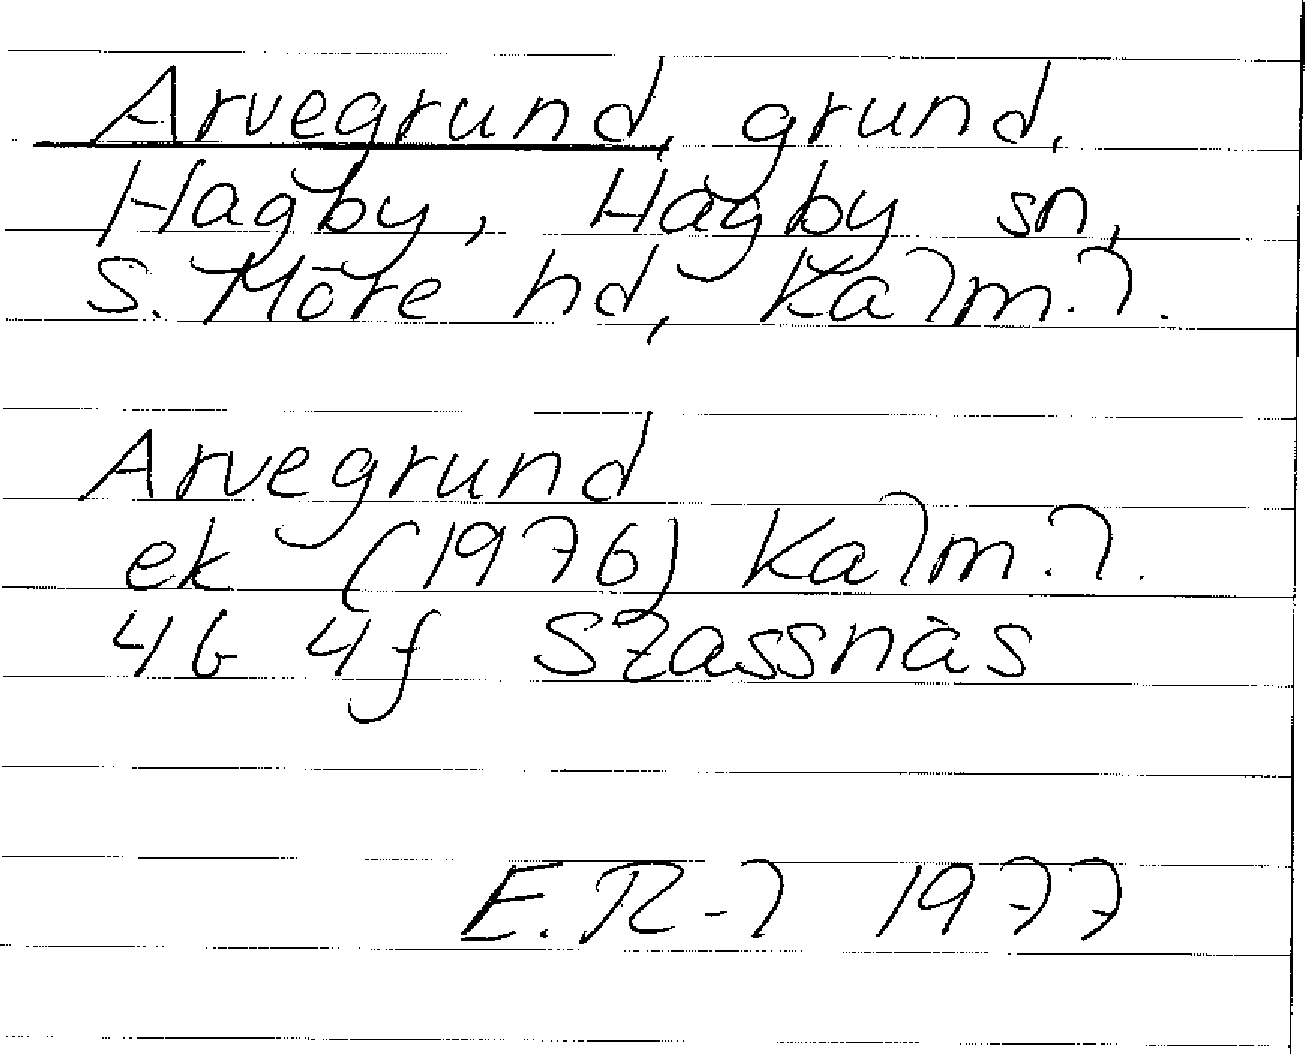 Arvegrund, grund,
Hagby, Hagby sn,
S. Möre hd, Kalm. l.
Arvegrund
ek (1976) Kalm. l.
4G 4f
E. R-l 1977